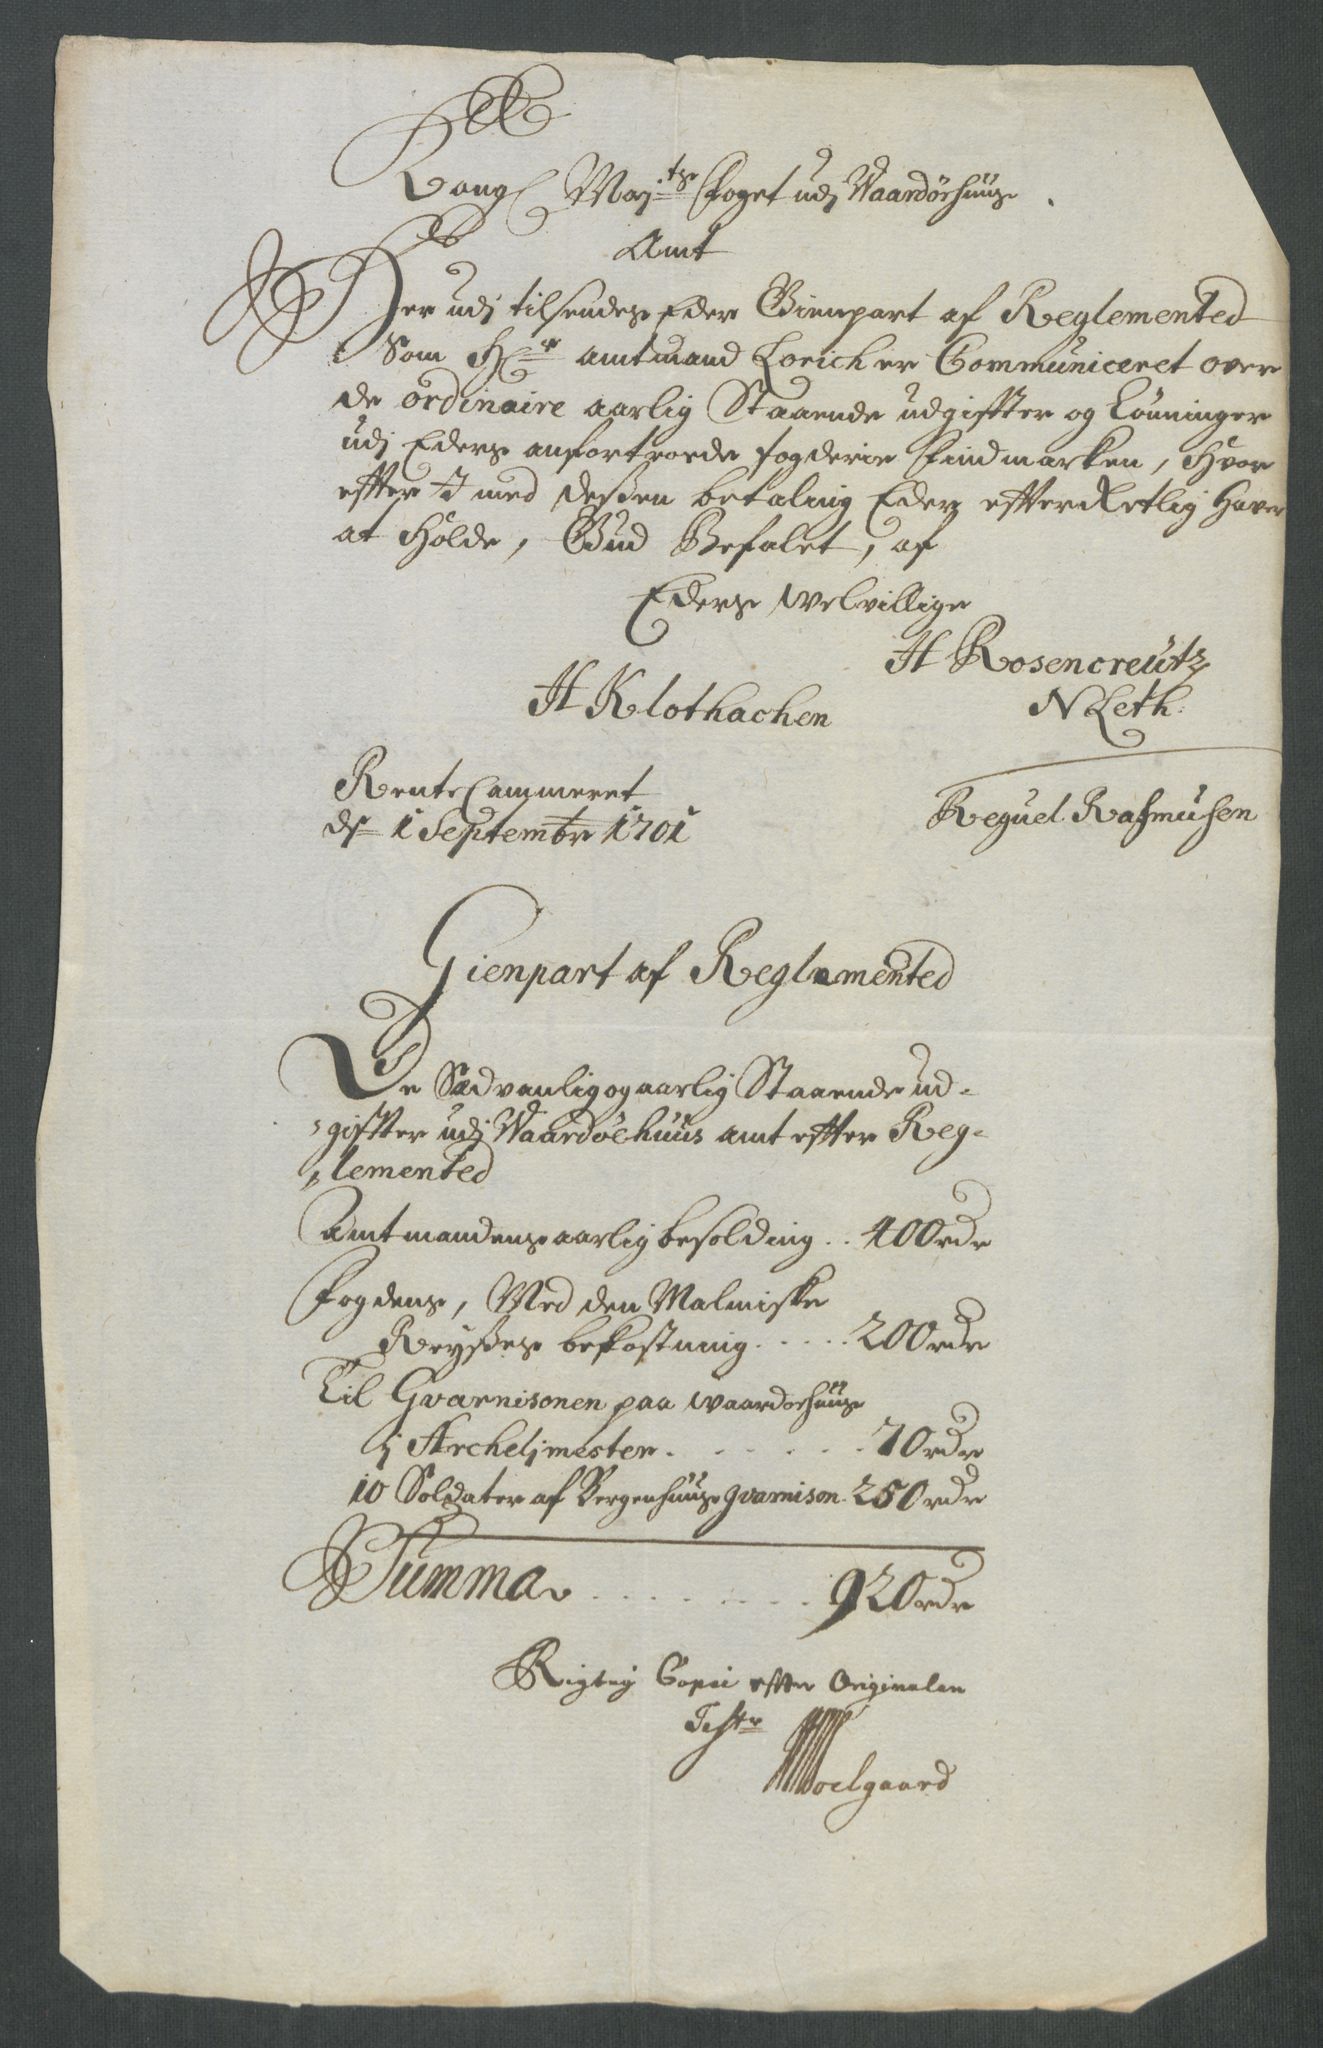 Kongl Maj:ts Foget udj Waardøehuuse
Amt
Her udj tilsendes Eder Gienpart af Reglemented
Som Hr amtmand Lorich er Communiceret over
de ordinaire aarlig Staaende udgiffter og Lønninger
udj Eders anfortroede fogderie Findmarken, Hvor
effter I med deßen betaling Eder effterRetlig Haver
at Holde, Gud Befalet, af
Eders welvillige
H Rosencreutz
H Klothachen N Leth.
RenteCammeret
ds 1 Septembr 1701
Reguel Rasmusen
Gienpart af Reglemented
De Sædvanlig og aarlig Staaende ud-
giffter udj Waardøehuus amt effter Reg-
lemented
Amtmandens aarlig besolding .. 400 rdr
Fogdens, Med den Malmiske
Reyßes bekostning ..... 200 rdr
Til Gvarnisonen paa waardøehuus
1 Archelimester ...... 70 rdr
10 Soldater af Bergenhuus gvarnison 250 rdr
Summa ........ 920 rdr
Rigtig Copie effter Originalen
Test